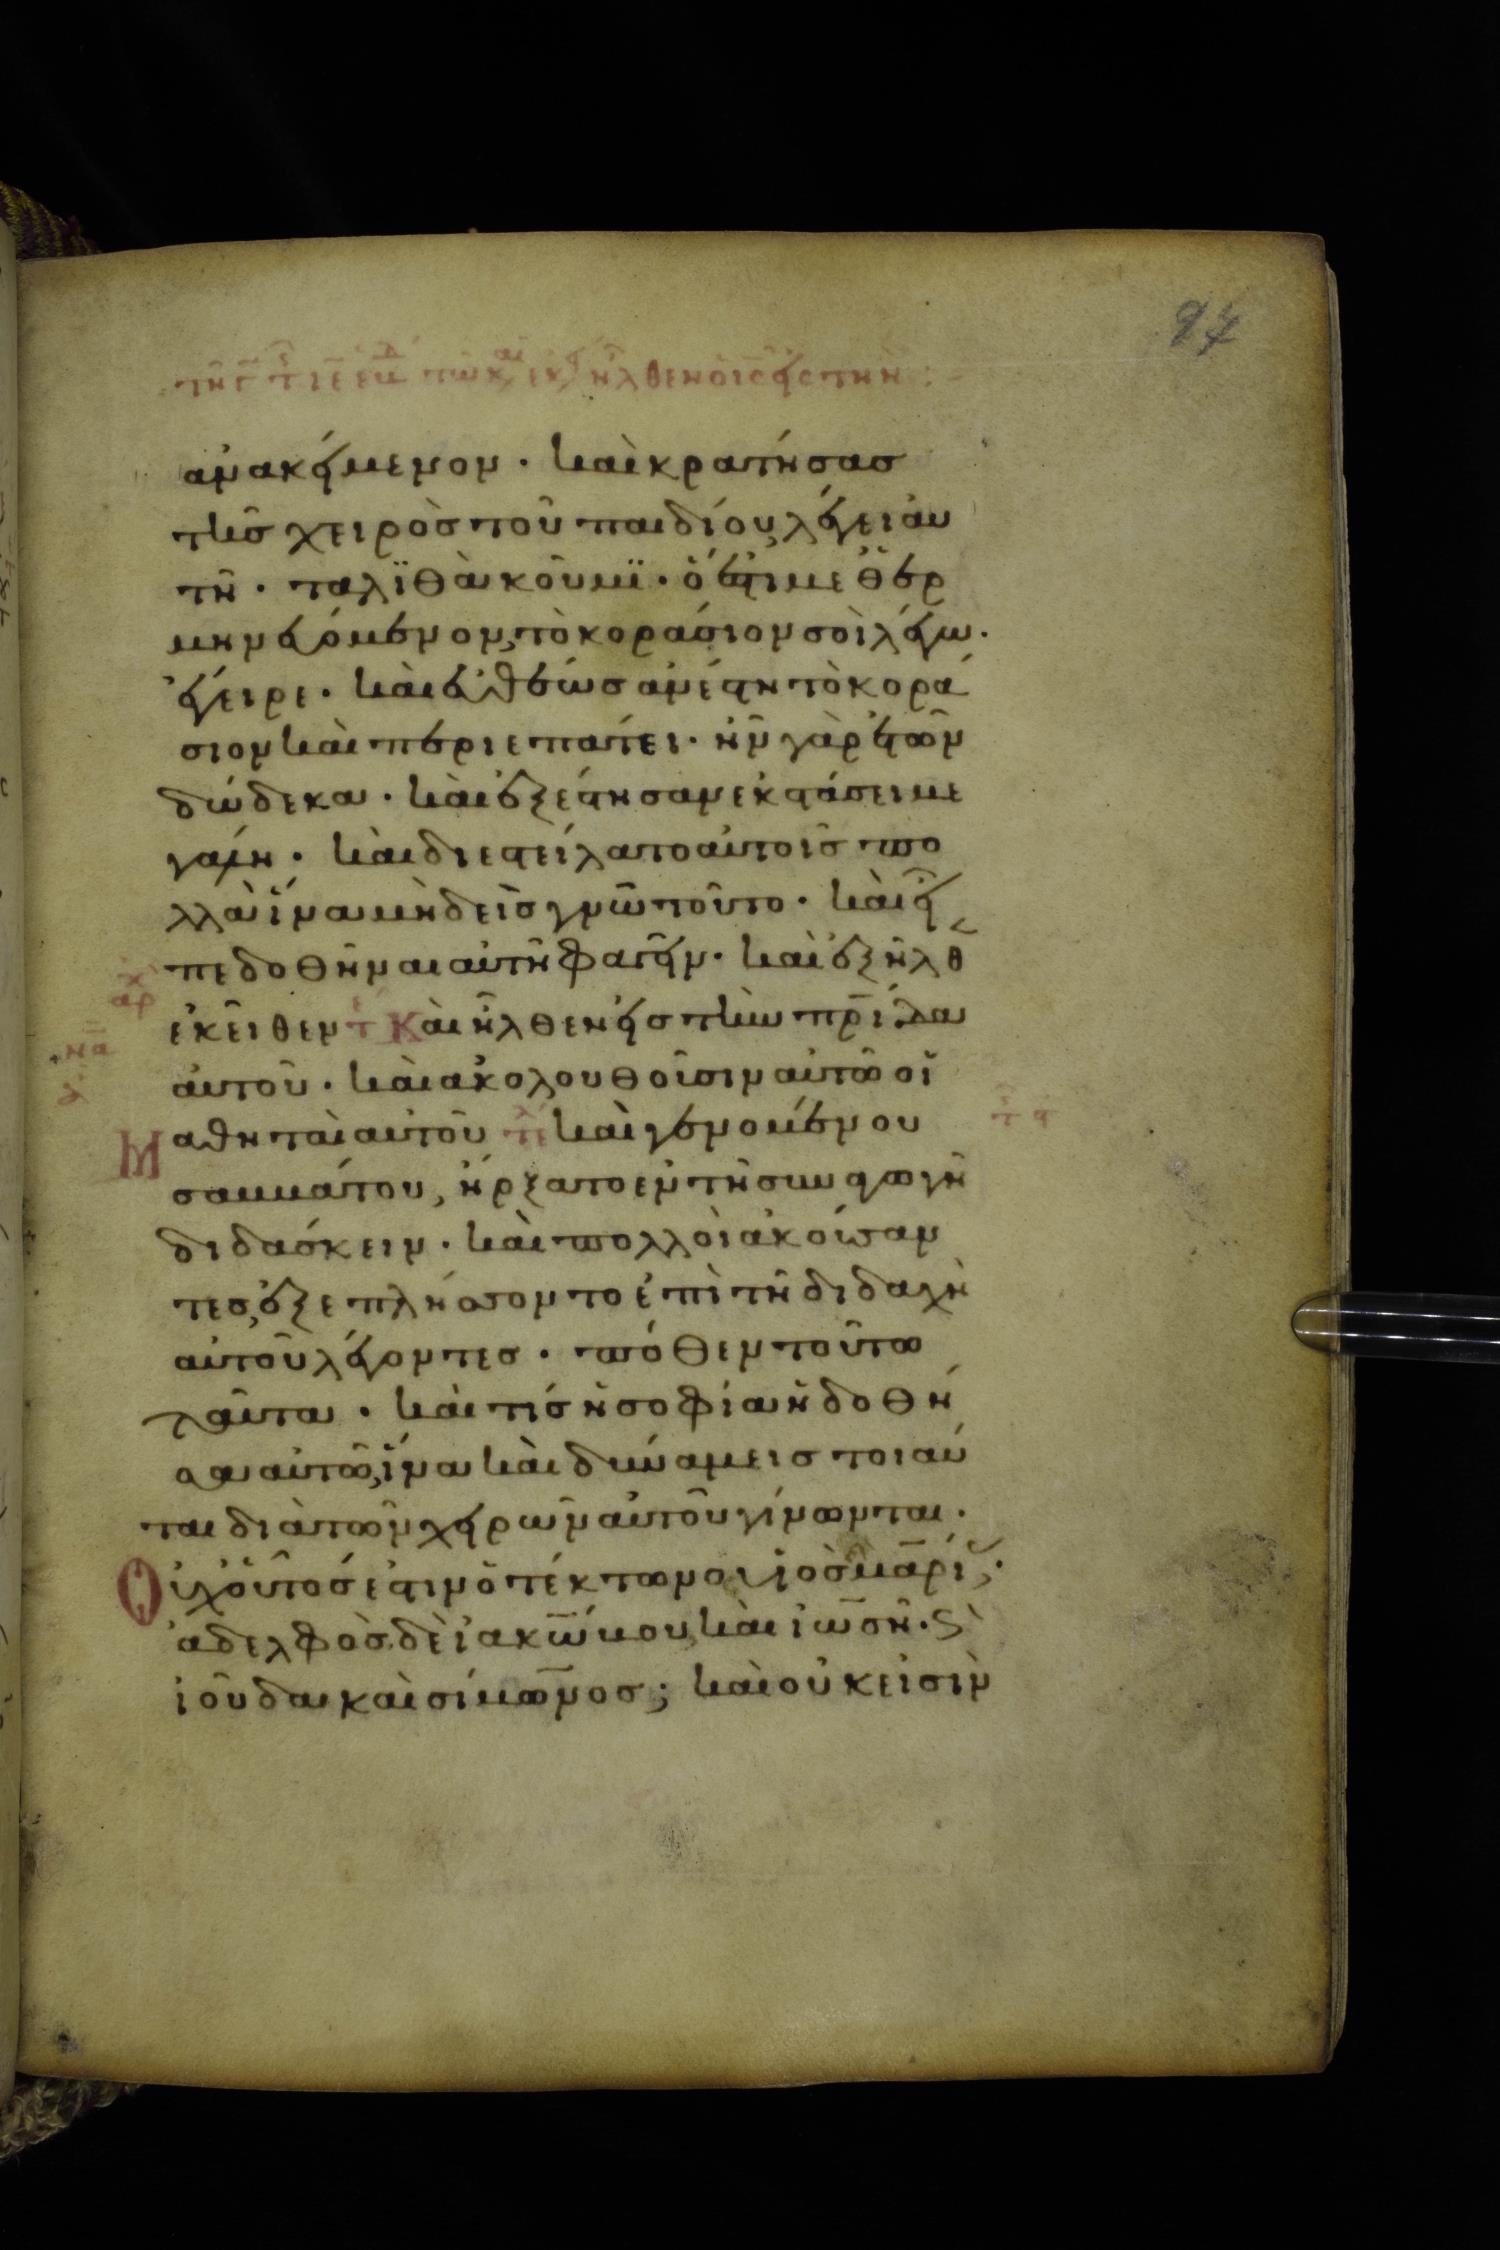 97
ἀνακείμενον· καὶ κρατήσασ
τῆσ χειρὸσ τοῦ παιδίου, λέγει αὐ
τῆ· ταλϊθὰ κοῦμϊ· ὅ ἐστι μεθερ
μηνευόμενον, τὸ κοράσιον σοὶ λέγω·
ἔγειρε· καὶ εὐθέωσ ἀνέστη τὸ κορά
σιον καὶ περιεπάτει· ἦν γὰρ ἐτῶν
δώδεκα· καὶ ἐξέστησαν ἐκστάσει με
γάλη· καὶ διεστείλατο αὐτοῖσ πο
λλὰ ἵνα μὴδεὶσ γνῶ τοῦτο· καὶ εἶ
πε δοθῆναι αὐτῆ φαγεῖν· καὶ ἐξῆλθ
ἐκεῖθεν Καὶ ἦλθεν εἰσ τὴν πρίδα
αὐτοῦ· καὶ ἀκολουθοῦσιν αὐτῶ οἱ
Μαθηταὶ αὐτοῦ καὶ γενομένου
σαββάτου, ἤρξατο ἐν τῆ συναγωγῆ
διδάσκειν· καὶ πολλοὶ ἀκούσαν
τες, ἐξεπλήσσοντο ἐπὶ τῆ διδαχὴ
αὐτοῦ λέγοντεσ· πόθεν τούτω
ταῦτα· καὶ τίσ ἡ σοφία ἡ δοθή
σα αὐτῶ, ἵνα καὶ δυνάμεισ τοιαύ
ται διὰ τῶν χειρῶν αὐτοῦ γίνωνται·
Οὐχ οὗτόσ ἐστιν ὁ τέκτων ὁ υἱὸσ μαρί,·
ἀδελφὸσ δὲ ἰακώβου, καὶ ἰωσῆ· ϛ
ἰοῦδα καὶ σίμωνοσ; καὶ οὐκ εἰσὶν